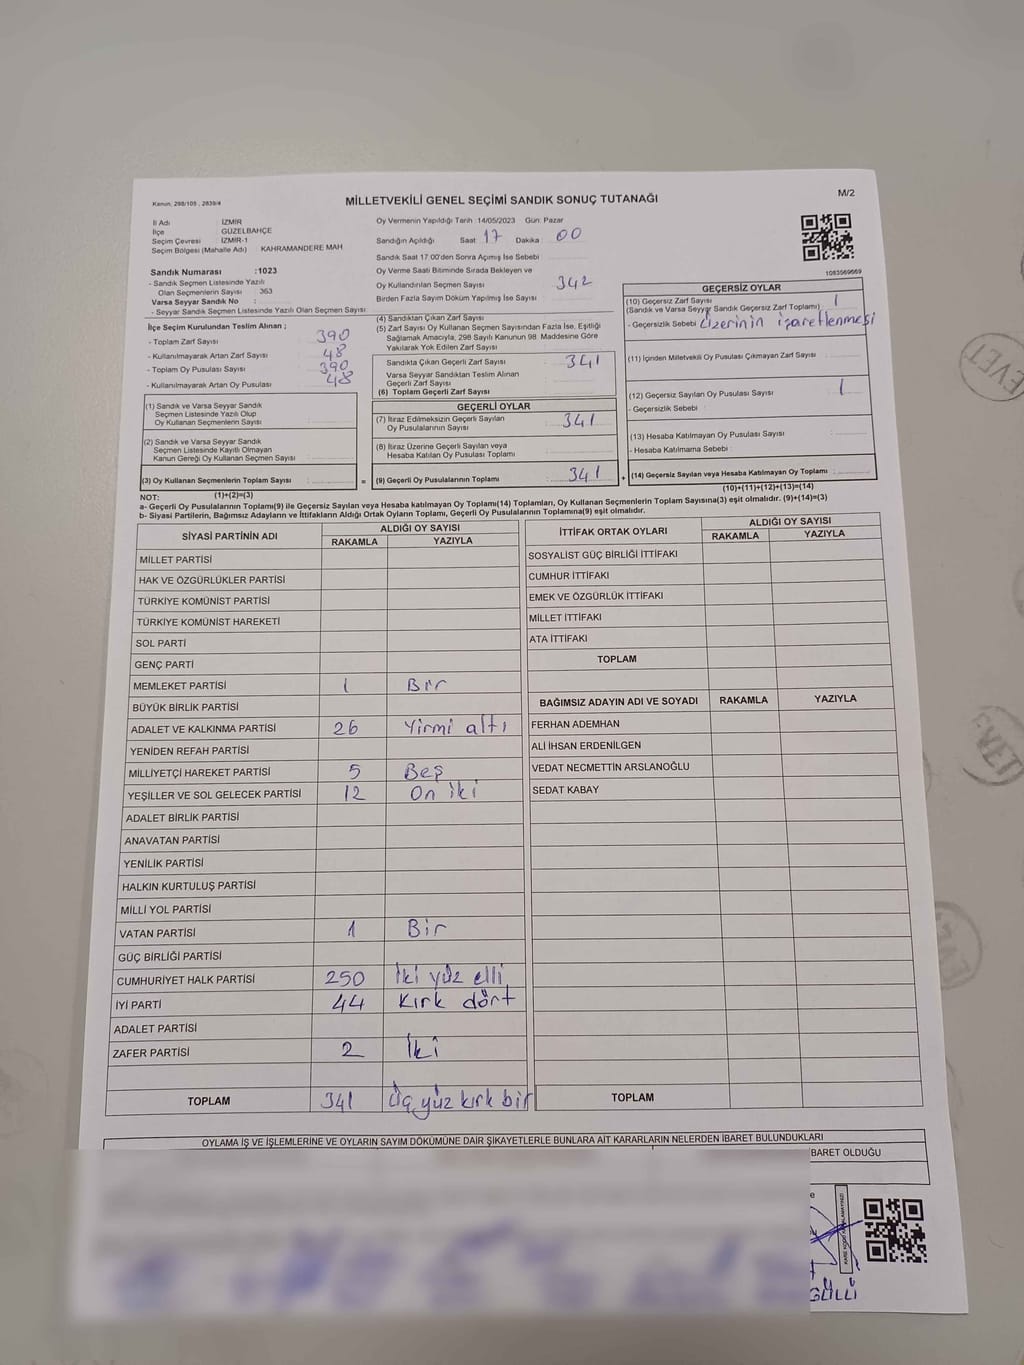 Kanun, 298/105 , 2839/4
MİLLETVEKİLİ GENEL SEÇİMİ SANDIK SONUÇ TUTANAĞI
M/2
İl Adı : İZMİR
İlçe : GÜZELBAHÇE
Seçim Çevresi : İZMİR-1
Seçim Bölgesi (Mahalle Adı) KAHRAMANDERE MAH
Sandık Numarası :1023
- Sandık Seçmen Listesinde Yazılı
Olan Seçmenlerin Sayısı 363
Varsa Seyyar Sandık No :
- Seyyar Sandık Seçmen Listesinde Yazılı Olan Seçmen Sayısı
İlçe Seçim Kurulundan Teslim Alınan ;
- Toplam Zarf Sayısı : 390
- Kullanılmayarak Artan Zarf Sayısı : 48
- Toplam Oy Pusulası Sayısı : 390
- Kullanılmayarak Artan Oy Pusulası : 48
(1) Sandık ve Varsa Seyyar Sandık
Seçmen Listesinde Yazılı Olup
Oy Kullanan Seçmenlerin Sayısı :
(2) Sandık ve Varsa Seyyar Sandık
Seçmen Listesinde Kayıtlı Olmayan
Kanun Gereği Oy Kullanan Seçmen Sayısı :
(3) Oy Kullanan Seçmenlerin Toplam Sayısı :
(1)+(2)=(3)
Oy Vermenin Yapıldığı Tarih :14/05/2023 Gün: Pazar
Sandığın Açıldığı Saat : 17 Dakika : 00
Sandık Saat 17:00'den Sonra Açımış İse Sebebi :
Oy Verme Saati Bitiminde Sırada Bekleyen ve
Oy Kullandırılan Seçmen Sayısı : 342
Birden Fazla Sayım Döküm Yapılmış İse Sayısı :
(4) Sandıktan Çıkan Zarf Sayısı :
(5) Zarf Sayısı Oy Kullanan Seçmen Sayısından Fazla İse, Eşitliği
Sağlamak Amacıyla, 298 Sayılı Kanunun 98. Maddesine Göre
Yakılarak Yok Edilen Zarf Sayısı :
Sandıkta Çıkan Geçerli Zarf Sayısı : 341
Varsa Seyyar Sandıktan Teslim Alınan
Geçerli Zarf Sayısı :
(6) Toplam Geçerli Zarf Sayısı :
GEÇERLİ OYLAR
(7) İtiraz Edilmeksizin Geçerli Sayılan
Oy Pusulalarının Sayısı : 341
(8) İtiraz Üzerine Geçerli Sayılan veya
Hesaba Katılan Oy Pusulası Toplamı :
= (9) Geçerli Oy Pusulalarının Toplamı : 341
1083569669
GEÇERSİZ OYLAR
(10) Geçersiz Zarf Sayısı
(Sandık ve Varsa Seyyar Sandık Geçersiz Zarf Toplamı) : 1
- Geçersizlik Sebebi : üzerinin işaretlenmesi
(11) İçinden Milletvekili Oy Pusulası Çıkmayan Zarf Sayısı :
(12) Geçersiz Sayılan Oy Pusulası Sayısı : 1
- Geçersizlik Sebebi :
(13) Hesaba Katılmayan Oy Pusulası Sayısı :
- Hesaba Katılmama Sebebi :
+ (14) Geçersiz Sayılan veya Hesaba Katılmayan Oy Toplamı :
(10)+(11)+(12)+(13)=(14)
NOT:
a- Geçerli Oy Pusulalarının Toplamı(9) ile Geçersiz Sayılan veya Hesaba katılmayan Oy Toplamı(14) Toplamları, Oy Kullanan Seçmenlerin Toplam Sayısına(3) eşit olmalıdır. (9)+(14)=(3)
b- Siyasi Partilerin, Bağımsız Adayların ve İttifakların Aldığı Ortak Oyların Toplamı, Geçerli Oy Pusulalarının Toplamına(9) eşit olmalıdır.
SİYASİ PARTİNİN ADI ALDIĞI OY SAYISI
RAKAMLA YAZIYLA
MİLLET PARTİSİ
HAK VE ÖZGÜRLÜKLER PARTİSİ
TÜRKİYE KOMÜNİST PARTİSİ
TÜRKİYE KOMÜNİST HAREKETİ
SOL PARTİ
GENÇ PARTİ
MEMLEKET PARTİSİ 1 Bir
BÜYÜK BİRLİK PARTİSİ
ADALET VE KALKINMA PARTİSİ 26 Yirmi altı
YENİDEN REFAH PARTİSİ
MİLLİYETÇİ HAREKET PARTİSİ 5 Beş
YEŞİLLER VE SOL GELECEK PARTİSİ 12 On iki
ADALET BİRLİK PARTİSİ
ANAVATAN PARTİSİ
YENİLİK PARTİSİ
HALKIN KURTULUŞ PARTİSİ
MİLLİ YOL PARTİSİ
VATAN PARTİSİ 1 Bir
GÜÇ BİRLİĞİ PARTİSİ
CUMHURİYET HALK PARTİSİ 250 İki yüz elli
İYİ PARTİ 44 Kırk dört
ADALET PARTİSİ
ZAFER PARTİSİ 2 İki
TOPLAM 341 Üç yüz kırk bir
İTTİFAK ORTAK OYLARI ALDIĞI OY SAYISI
RAKAMLA YAZIYLA
SOSYALİST GÜÇ BİRLİĞİ İTTİFAKI
CUMHUR İTTİFAKI
EMEK VE ÖZGÜRLÜK İTTİFAKI
MİLLET İTTİFAKI
ATA İTTİFAKI
TOPLAM
BAĞIMSIZ ADAYIN ADI VE SOYADI RAKAMLA YAZIYLA
FERHAN ADEMHAN
ALİ İHSAN ERDENİLGEN
VEDAT NECMETTİN ARSLANOĞLU
SEDAT KABAY
TOPLAM
OYLAMA İŞ VE İŞLEMLERİNE VE OYLARIN SAYIM DÖKÜMÜNE DAİR ŞİKAYETLERLE BUNLARA AİT KARARLARIN NELERDEN İBARET BULUNDUKLARI
BARET OLDUĞU
GÜLLÜ
EVET
EVET
EVET